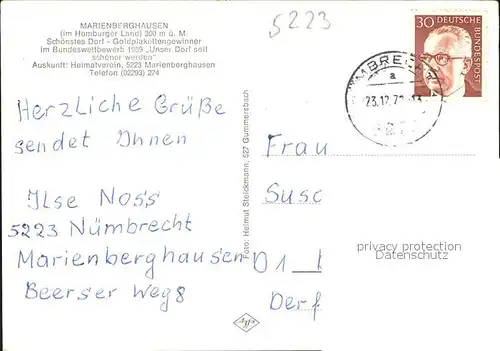 MARIENBERGHAUSEN
(im Homburger Land) 300 m ü. M.
Schönstes Dorf - Goldplakettengewinner
im Bundeswettbewerb 1969 „Unser Dorf soll
schöner werden"
Auskunft: Heimatverein, 5223 Marienberghausen
Telefon (02293) 274
5223
30 DEUTSCHE
BUNDESPOST
a
23.12.72
Herzliche Grüße
sendet Ihnen
Ilse Noss
5223 Nümbrecht
Marienberghausen
Beerser Weg 8
Foto: Helmut Steickmann, 527 Gummersbach
Frau
Susc
privacy protection
Datenschutz
Derf
Agfa